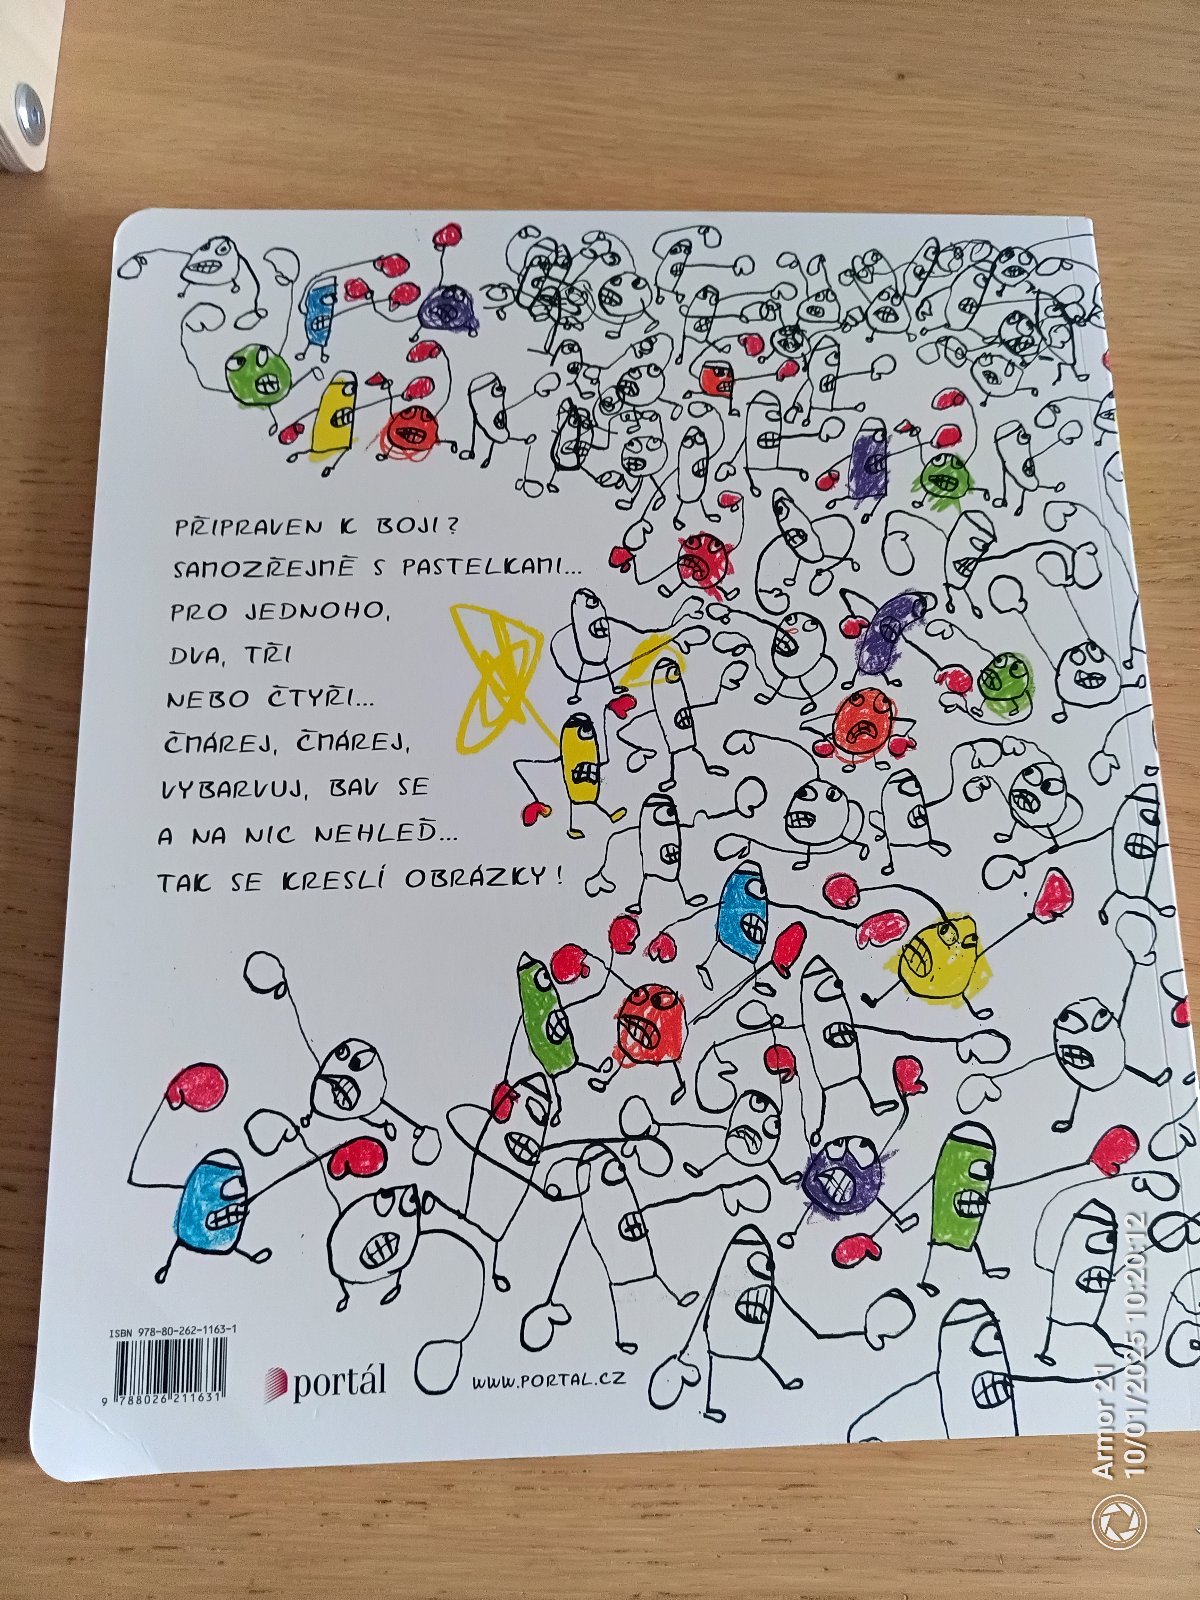 PŘIPRAVEN K BOJI?
SAMOZŘEJMĚ S PASTELKAMI...
PRO JEDNOHO,
DVA, TŘI
NEBO ČTYŘI...
ČMÁREJ, ČMÁREJ,
VYBARVUJ, BAV SE
A NA NIC NEHLEĎ...
TAK SE KRESLÍ OBRÁZKY!
ISBN 978-80-262-1163-1
9 788026 211631
portál
WWW.PORTAL.CZ
Armor 21
10/01/2025 10:20:12